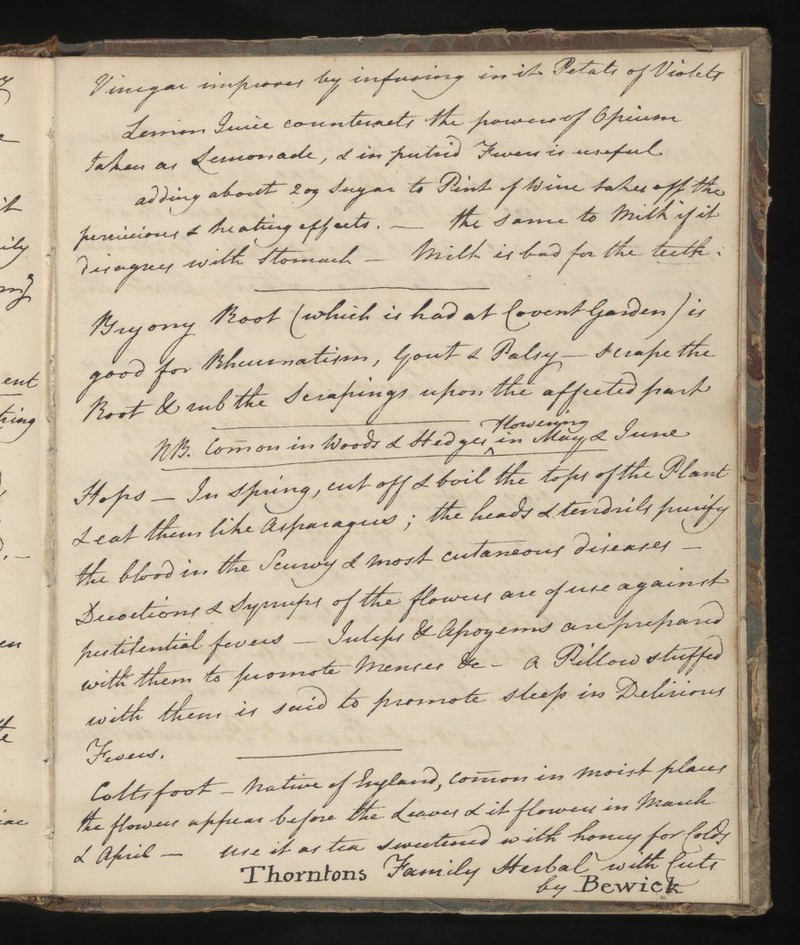 Vinegar improves by infusing in it Petals of Violets
Lemon Juice counteracts the powers of Opium
taken as Lemonade, & in putrid Fevers is useful
adding about 2 oz Sugar to Pint of Wine takes off the
pernicious & heating effects. — the same to Milk if it
disagrees with Stomach — Milk is bad for the teeth.
Bryony Root (which is had at Covent Garden) is
good for Rheumatism, Gout & Palsy — scrape the
Root & rub the Scrapings upon the affected part
flowering
NB. Comon in Woods & Hedges ^ in May & June
Hops — In Spring, cut off & boil the tops of the Plant
& eat them like Asparagus; the heads & tendrils purify
the blood in the Scurvy & most cutaneous diseases —
Decoctions & Syrups of the flowers are of use against
pestilential fevers — Juleps & Apozems are prepared
with them to promote Menses &c — a Pillow stuffed
with them is said to promote sleep in Delirious
Fevers.
Coltsfoot — Native of England, comon in moist places
the flowers appear before the Leaves & it flowers in March
& April — use it as tea sweetened with honey for Colds
Thorntons Family Herbal with Cuts
by Bewick